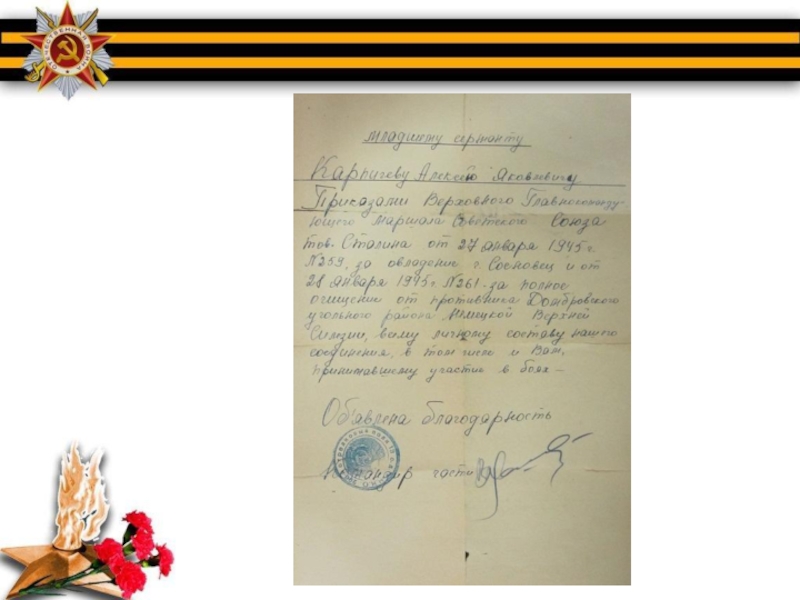 ОТЕЧЕСТВЕННАЯ ВОЙНА
Младшему сержанту
Карпигову Алексею Яковлевичу
Приказами Верховного Главнокоманду-
ющего Маршала Советского Союза
тов. Сталина от 27 января 1945 г.
№259, за овладение г. Сосновец и от
28 января 1945 г. №261 за полное
очищение от противника Домбровского
угольного района Немецкой Верхней
Силезии, всему личному составу нашего
соединения, в том числе и Вам,
принимавшему участие в боях —
Об'явлена благодарность
Командир части